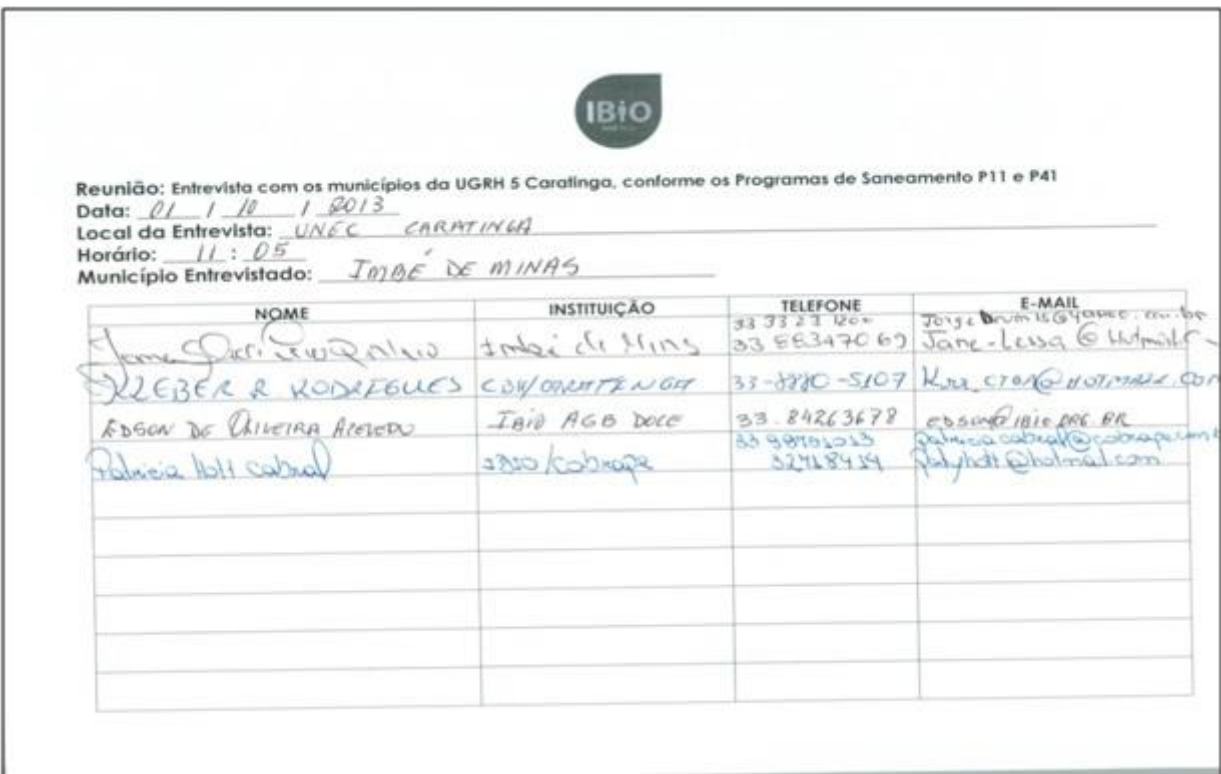 IBiO
Reunião: Entrevista com os municípios da UGRH 5 Caratinga, conforme os Programas de Saneamento P11 e P41
Data: 01 / 10 / 2013
Local da Entrevista: UNEC CARATINGA
Horário: 11 : 05
Município Entrevistado: IMBÉ DE MINAS
NOME INSTITUIÇÃO TELEFONE E-MAIL
Imbé de Minas 33 88347069 Jane-Lessa@
KLEBER R RODRIGUES CBH/CARATINGA 33-8880-5107
EDSON DE OLIVEIRA AZEVEDO IBIO AGB DOCE 33.84263678 edson@ibio.org.br
Patricia Hott Cabral /Cobrape 32718414 patyhott@hotmail.com